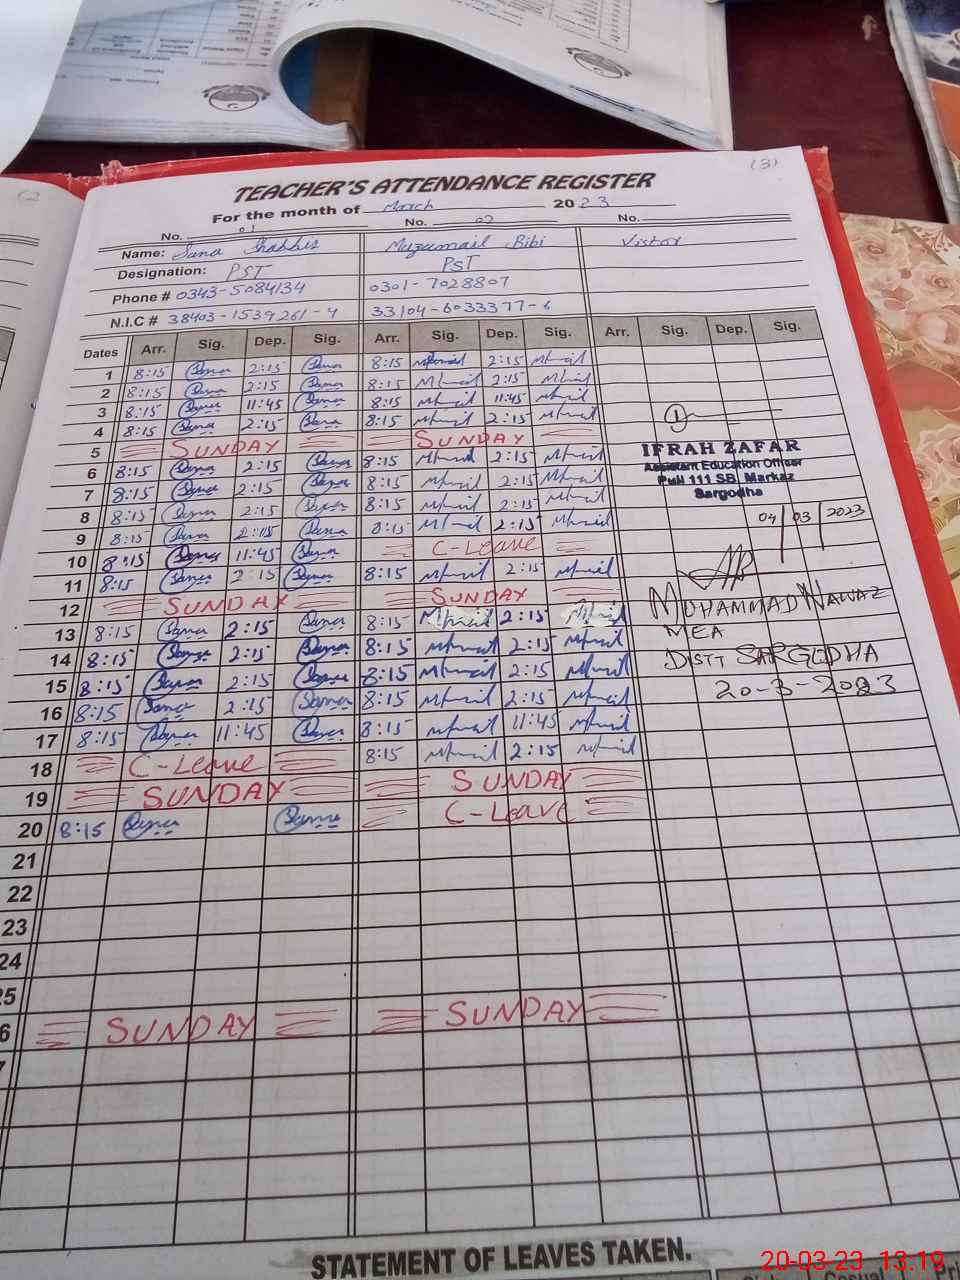 (3)
TEACHER'S ATTENDANCE REGISTER
For the month of March 2023
No. 01 No. 02 No.
Name: Sana Shabbir Muzamail Bibi Vistor
Designation: PST PST
Phone # 0343-5084134 0301-7028807
N.I.C # 38403-1539261-4 33104-6033377-6
Dates Arr. Sig. Dep. Sig. Arr. Sig. Dep. Sig. Arr. Sig. Dep. Sig.
1 8:15 Sana 2:15 Sana 8:15 2:15
2 8:15 Sana 2:15 Sana 8:15 2:15
3 8:15 Sana 11:45 Sana 8:15 11:45
4 8:15 Sana 2:15 Sana 8:15 2:15
5 SUNDAY SUNDAY
6 8:15 Sana 2:15 Sana 8:15 2:15
7 8:15 Sana 2:15 Sana 8:15 2:15
8 8:15 Sana 2:15 Sana 8:15 2:15
9 8:15 Sana 2:15 Sana 8:15 2:15
10 8:15 Sana 11:45 Sana C-Leave
11 8:15 Sana 2:15 Sana 8:15 2:15
12 SUNDAY SUNDAY
13 8:15 Sana 2:15 Sana 8:15 2:15
14 8:15 Sana 2:15 Sana 8:15 2:15
15 8:15 Sana 2:15 Sana 8:15 2:15
16 8:15 Sana 2:15 Sana 8:15 2:15
17 8:15 Sana 11:45 Sana 8:15 11:45
18 C-Leave 8:15 2:15
19 SUNDAY SUNDAY
20 8:15 Sana Sana C-Leave
21
22
23
24
25
6 SUNDAY SUNDAY
7
1
IFRAH ZAFAR
Assistant Education Officer
Pull 111 SB, Markaz
Sargodha
04/03/2023
MUHAMMAD NAWAZ
MEA
DISTT SARGODHA
20-3-2023
STATEMENT OF LEAVES TAKEN.
20-03-23 13:19